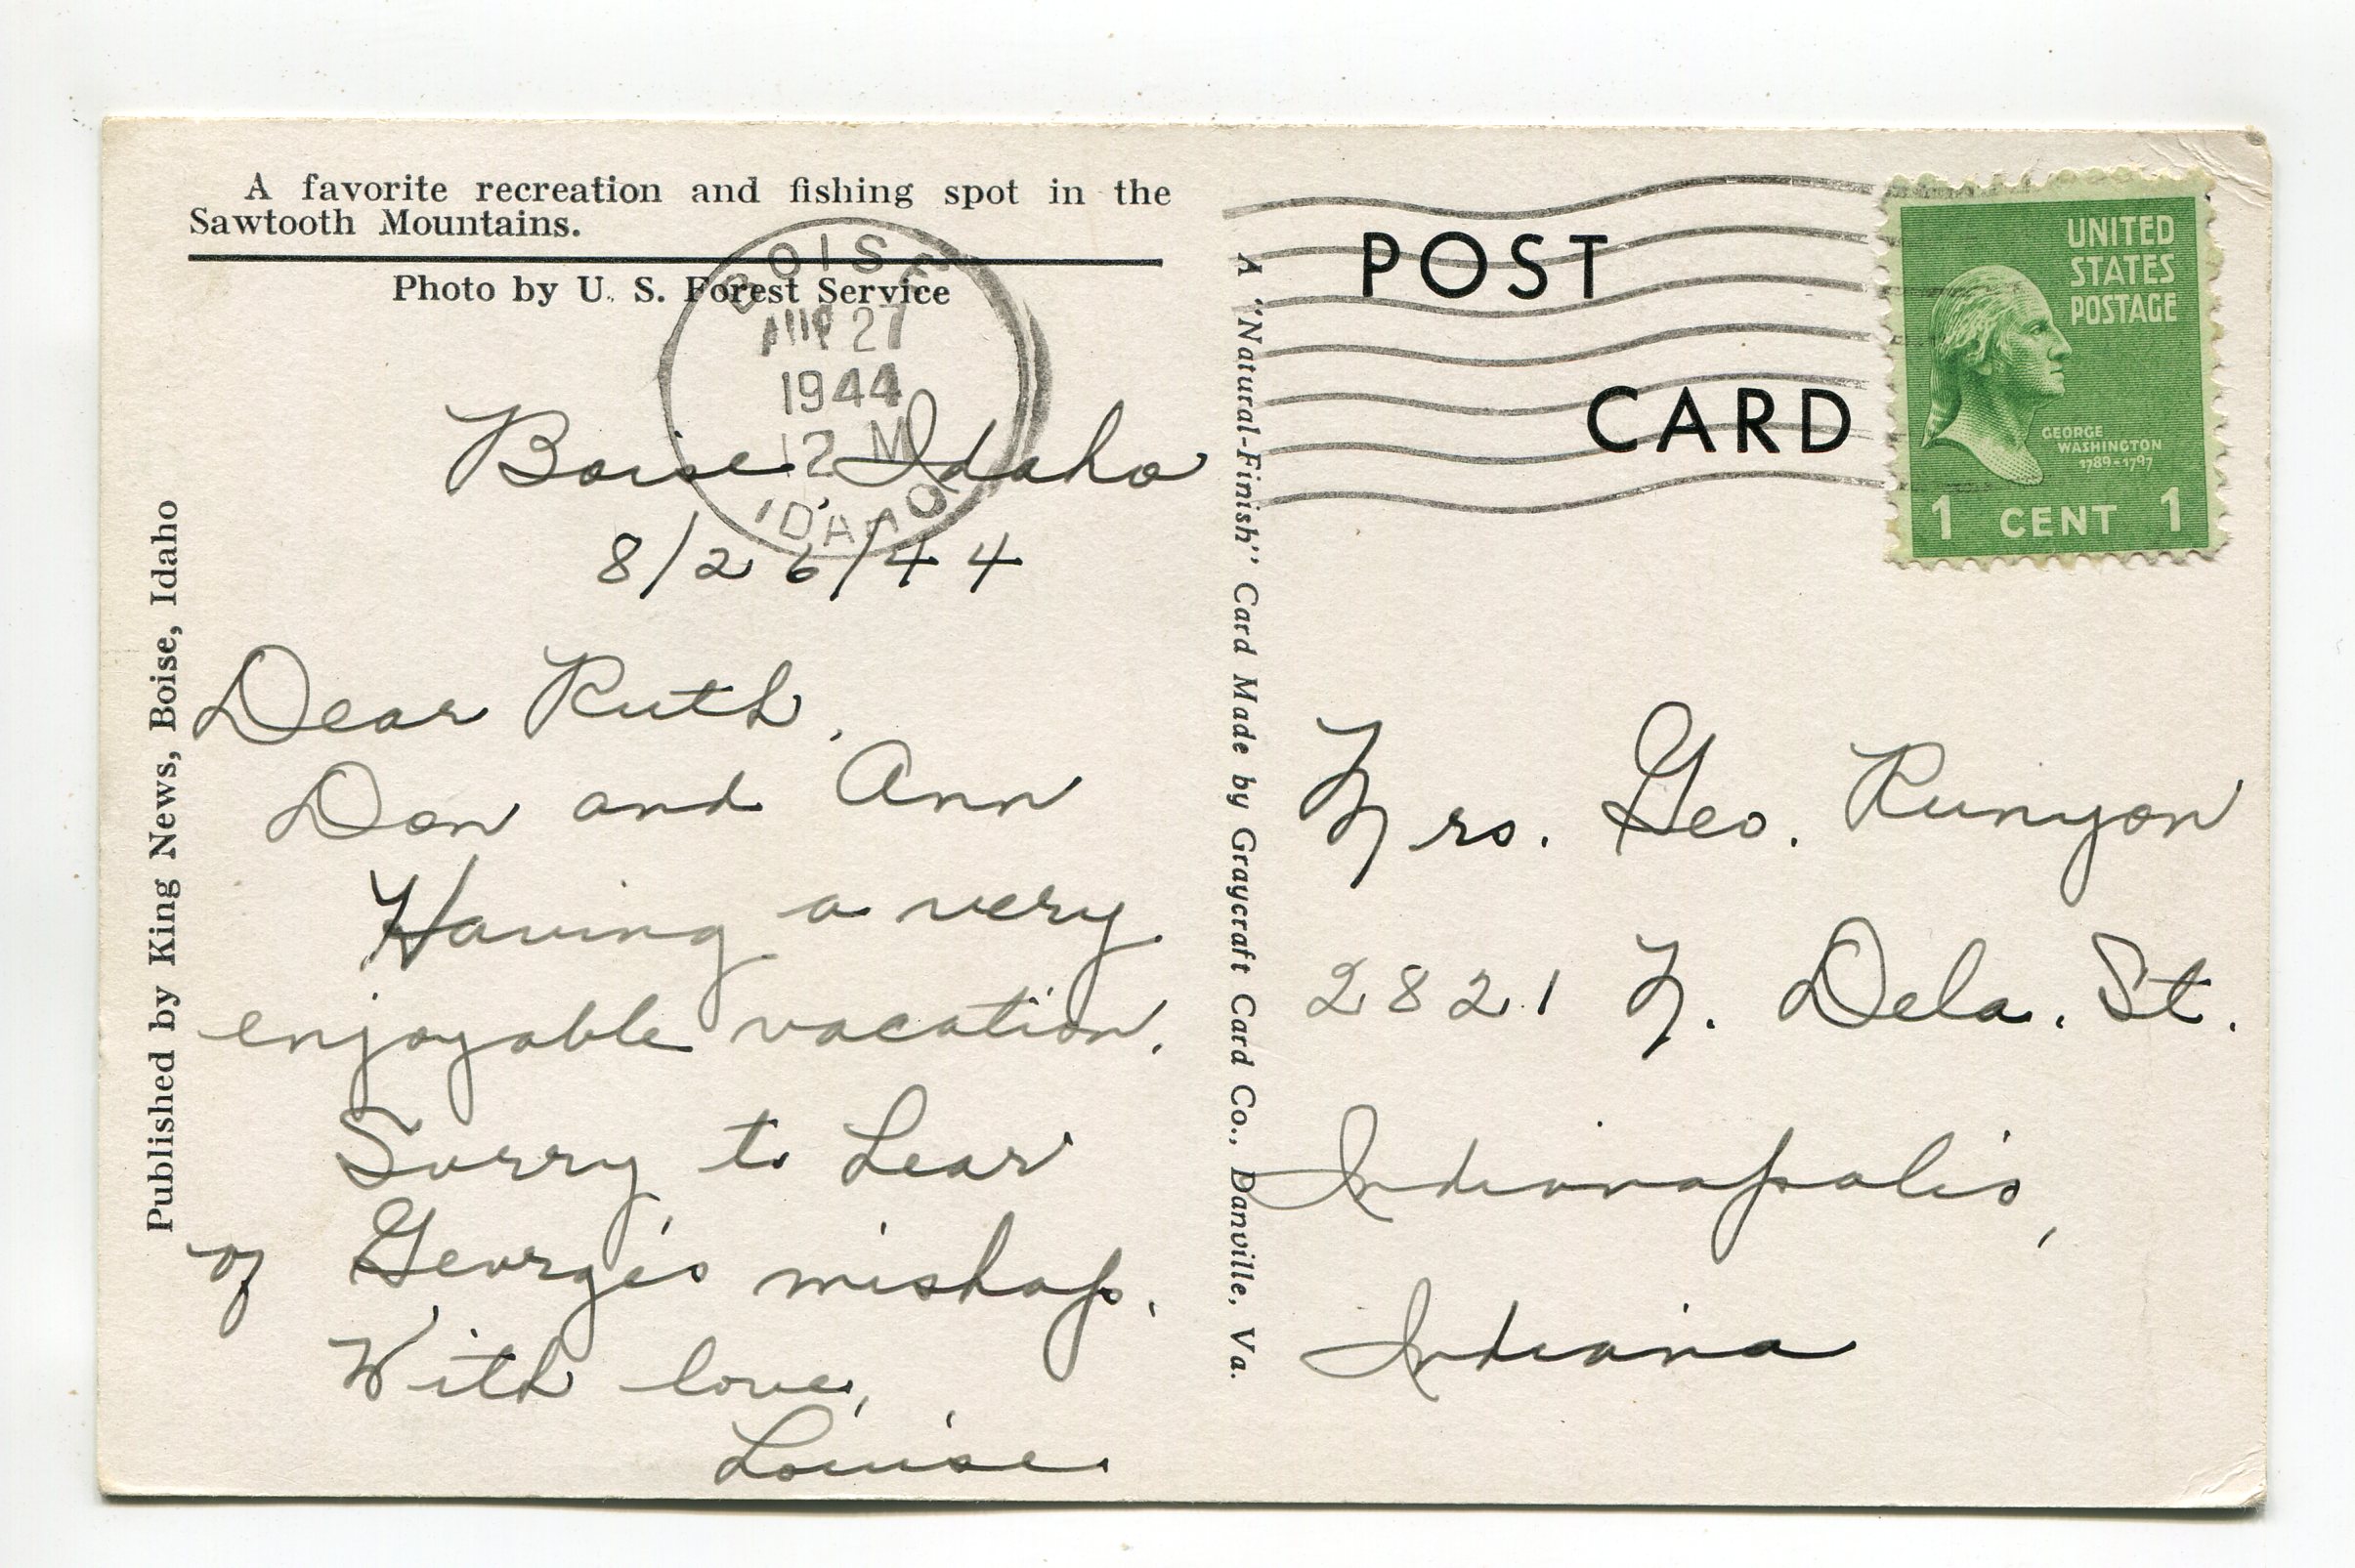 A favorite recreation and fishing spot in the
Sawtooth Mountains.
Photo by U. S. Forest Service
BOISE
AUG 27
1944
12 M
IDAHO
Boise Idaho
8/26/44
Dear Ruth,
Don and Ann
Having a very
enjoyable vacation.
Sorry to hear
of George's mishap.
With love,
Louise.
Published by King News, Boise, Idaho
A "Natural-Finish" Card Made by Graycraft Card Co., Danville, Va.
POST
CARD
UNITED
STATES
POSTAGE
GEORGE
WASHINGTON
1789-1797
1 CENT 1
Mrs. Geo. Runyon
2821 N. Dela. St.
Indianapolis,
Indiana